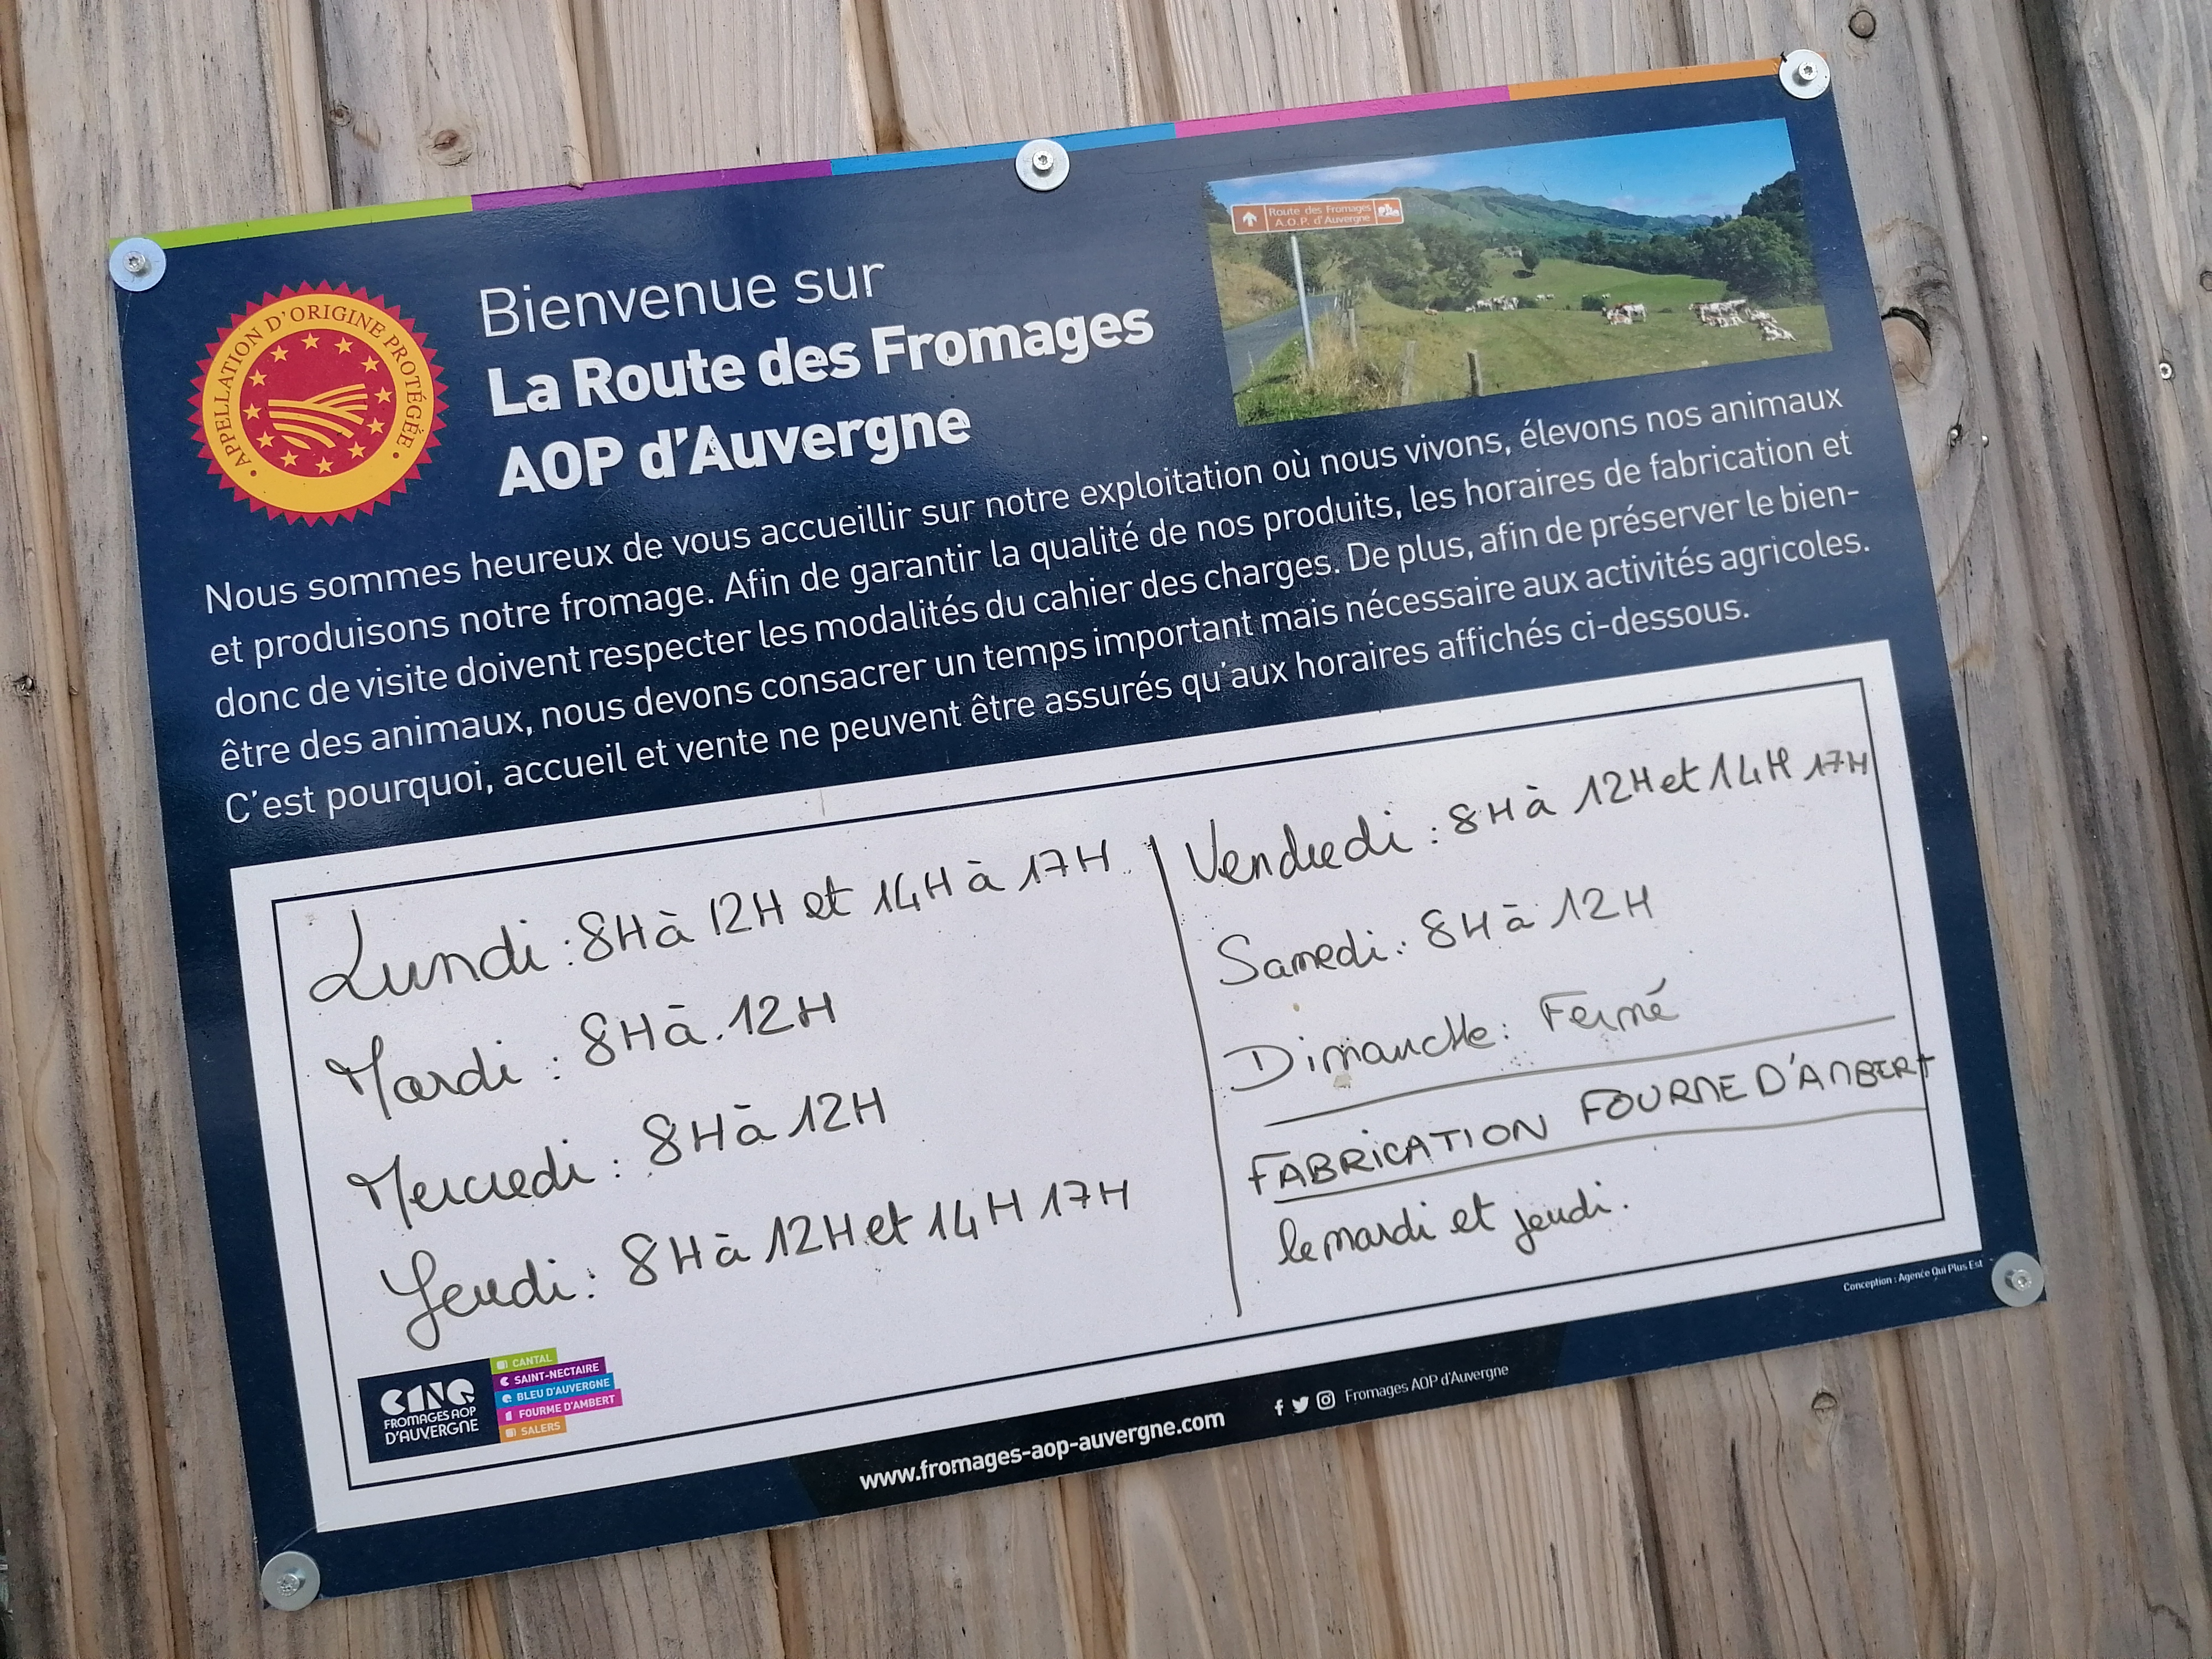 APPELLATION D'ORIGINE PROTÉGÉE
Bienvenue sur
La Route des Fromages
AOP d'Auvergne
Route des Fromages
A.O.P. d'Auvergne
Nous sommes heureux de vous accueillir sur notre exploitation où nous vivons, élevons nos animaux
et produisons notre fromage. Afin de garantir la qualité de nos produits, les horaires de fabrication et
donc de visite doivent respecter les modalités du cahier des charges. De plus, afin de préserver le bien-
être des animaux, nous devons consacrer un temps important mais nécessaire aux activités agricoles.
C'est pourquoi, accueil et vente ne peuvent être assurés qu'aux horaires affichés ci-dessous.
Lundi : 8H à 12H et 14H à 17H
Mardi : 8H à 12H
Mercredi : 8H à 12H
Jeudi : 8H à 12H et 14H 17H
Vendredi : 8H à 12H et 14H 17H
Samedi : 8H à 12H
Dimanche : Fermé
FABRICATION FOURME D'AMBERT
le mardi et jeudi.
CINQ
FROMAGES AOP
D'AUVERGNE
CANTAL
SAINT-NECTAIRE
BLEU D'AUVERGNE
FOURME D'AMBERT
SALERS
www.fromages-aop-auvergne.com
Fromages AOP d'Auvergne
Conception : Agence Qui Plus Est